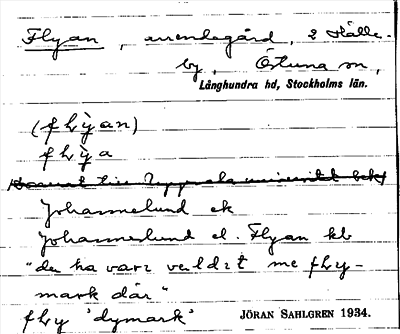 Flyan, arrendegård, 2 Hälle-
by, Östuna sn,
Långhundra hd, Stockholms län.
(fLỳan)
fLỳa
Johannelund ek
Johannelund el. Flyan kb
"de ha varı veldıt me fLy-
mark där"
fLy 'dymark'
JÖRAN SAHLGREN 1934.